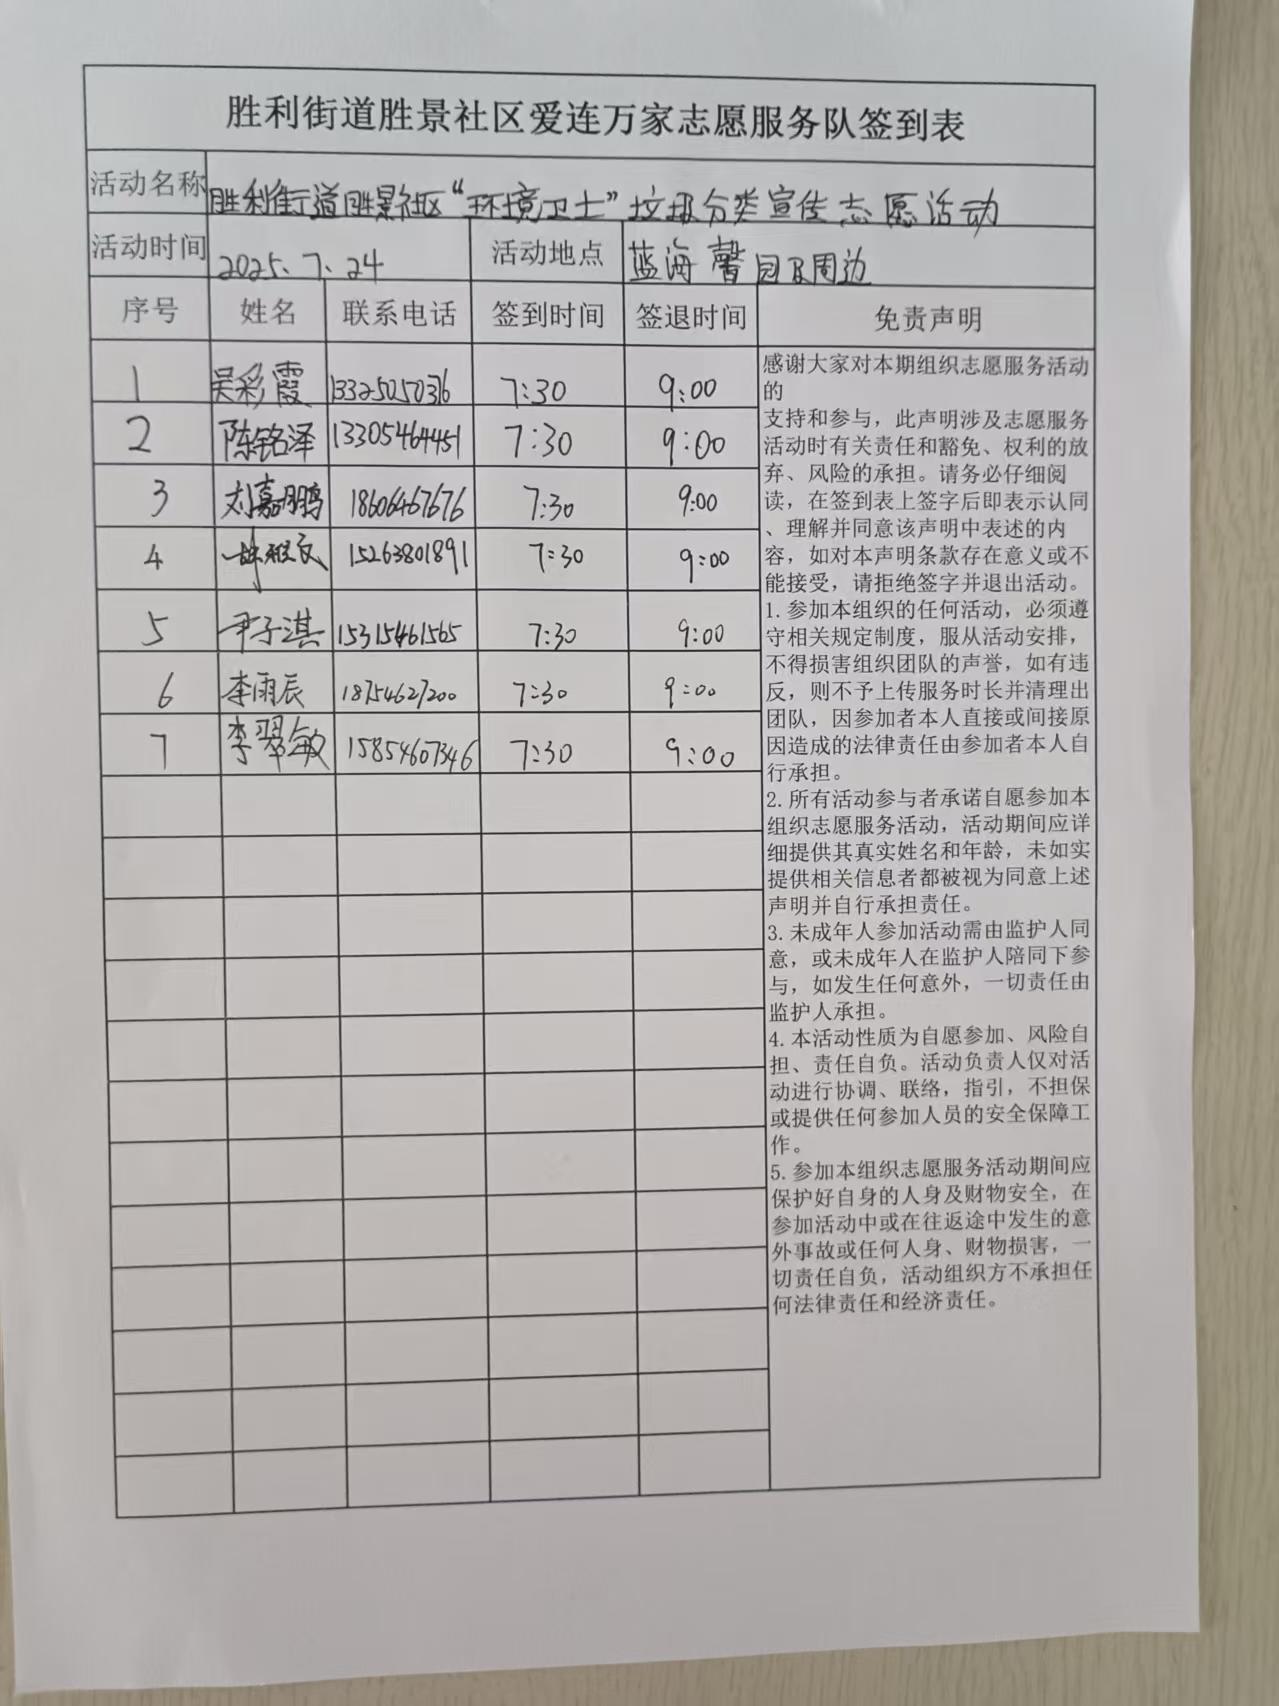 胜利街道胜景社区爱连万家志愿服务队签到表
活动名称 胜利街道胜景社区“环境卫士”垃圾分类宣传志愿活动
活动时间 2025.7.24 活动地点 蓝海馨园及周边
序号 姓名 联系电话 签到时间 签退时间 免责声明
1 吴彩霞 13325050376 7:30 9:00
2 陈铭泽 13305464451 7:30 9:00
3 刘嘉鹏 18606467676 7:30 9:00
4 15263801891 7:30 9:00
5 尹子淇 15315461565 7:30 9:00
6 李雨辰 18754627200 7:30 9:00
7 李翠敏 15854607346 7:30 9:00
感谢大家对本期组织志愿服务活动
的
支持和参与，此声明涉及志愿服务
活动时有关责任和豁免、权利的放
弃、风险的承担。请务必仔细阅
读，在签到表上签字后即表示认同
、理解并同意该声明中表述的内
容，如对本声明条款存在意义或不
能接受，请拒绝签字并退出活动。
1.参加本组织的任何活动，必须遵
守相关规定制度，服从活动安排，
不得损害组织团队的声誉，如有违
反，则不予上传服务时长并清理出
团队，因参加者本人直接或间接原
因造成的法律责任由参加者本人自
行承担。
2.所有活动参与者承诺自愿参加本
组织志愿服务活动，活动期间应详
细提供其真实姓名和年龄，未如实
提供相关信息者都被视为同意上述
声明并自行承担责任。
3.未成年人参加活动需由监护人同
意，或未成年人在监护人陪同下参
与，如发生任何意外，一切责任由
监护人承担。
4.本活动性质为自愿参加、风险自
担、责任自负。活动负责人仅对活
动进行协调、联络，指引，不担保
或提供任何参加人员的安全保障工
作。
5.参加本组织志愿服务活动期间应
保护好自身的人身及财物安全，在
参加活动中或在往返途中发生的意
外事故或任何人身、财物损害，一
切责任自负，活动组织方不承担任
何法律责任和经济责任。